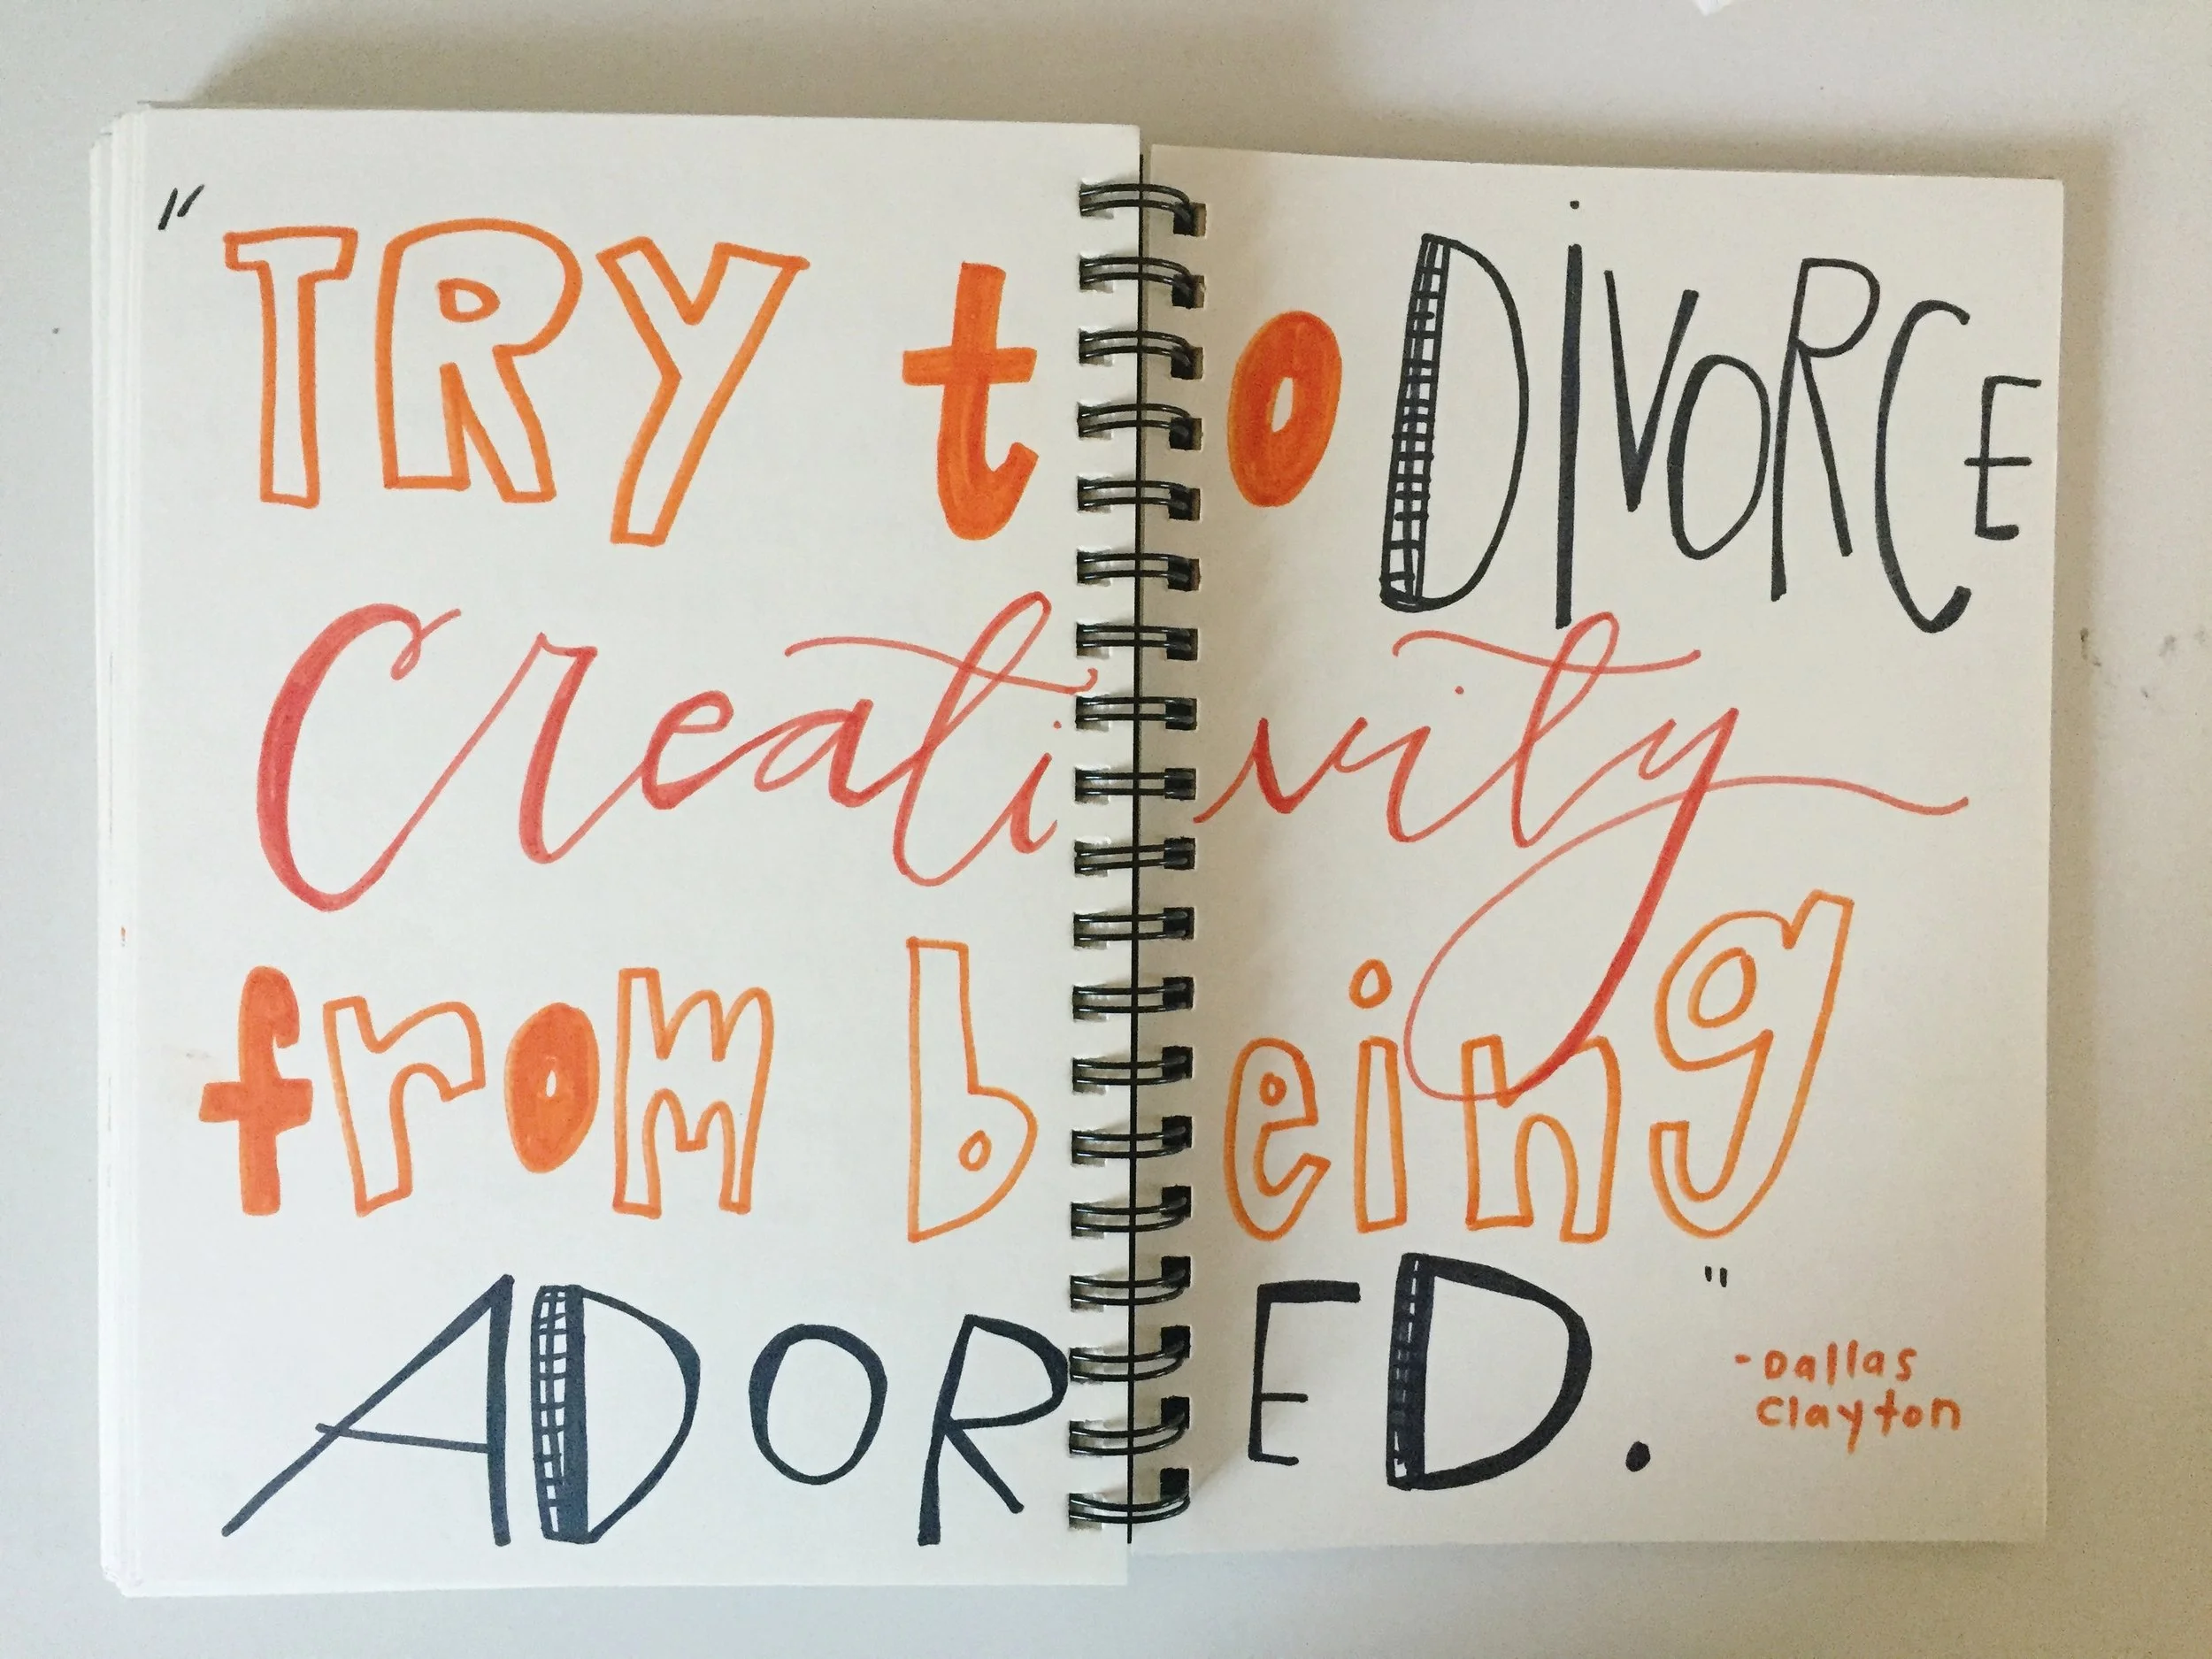 "TRY to DIVORCE
Creativity
from being
ADORED."
-Dallas
Clayton